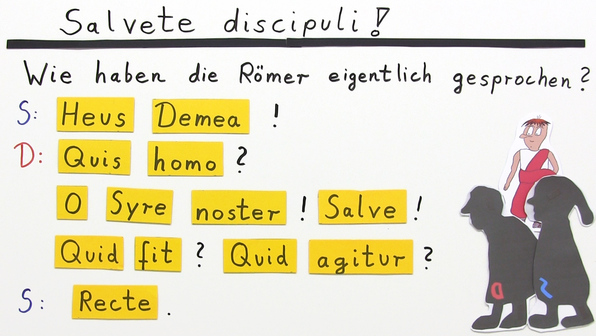 Salvete discipuli!
Wie haben die Römer eigentlich gesprochen?
S: Heus Demea !
D: Quis homo ?
O Syre noster ! Salve !
Quid fit ? Quid agitur ?
S: Recte .
D S